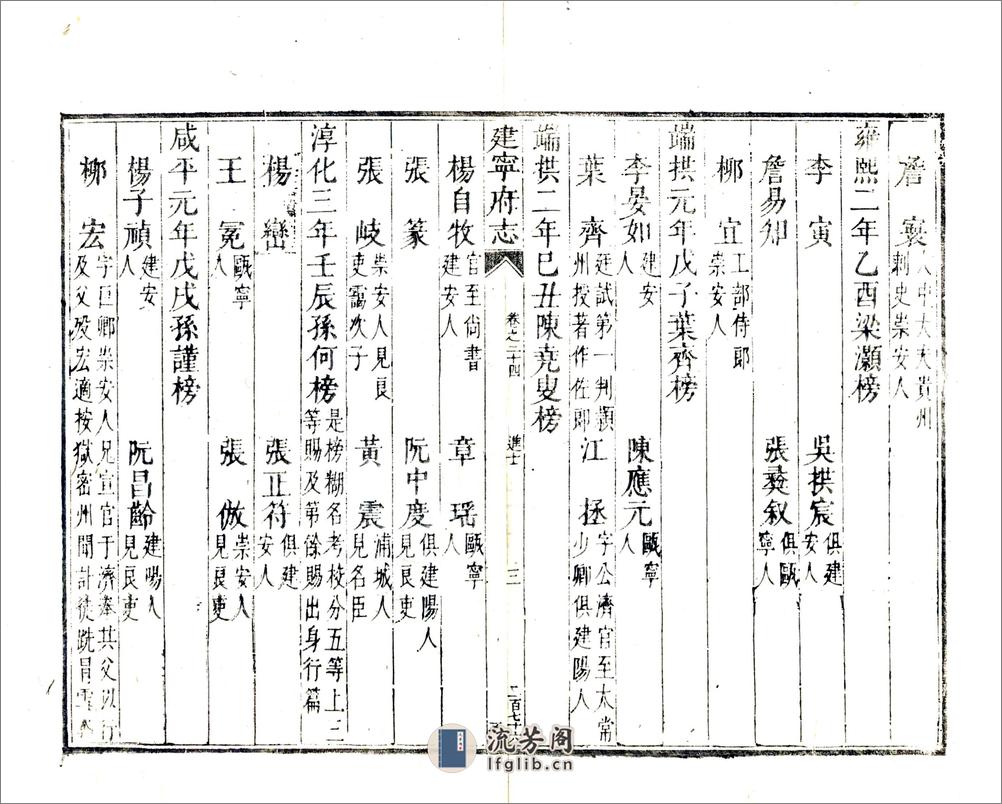 詹襄 大中大夫貴州刺史崇安人
雍熙二年乙酉梁灝榜
李寅 吳拱宸 俱建安人
詹易知 張彞叙 俱甌寧人
柳宜 工部侍郎崇安人
端拱元年戊子葉齊榜
李晏如 建安人 陳應元 甌寧人
葉齊 廷試第一判潁州授著作佐郎 江拯 字公濟官至太常少卿俱建陽人
端拱二年巳丑陳堯叟榜
建寧府志 卷之二十四 進士 三
楊自牧 官至尚書建安人 章瑤 甌寧人
張篆 阮中度 俱建陽人見良吏
張岐 崇安人見良吏靄次子 黃震 浦城人見名臣
淳化三年壬辰孫何榜 是榜糊名考校分五等上三等賜及第餘賜出身行篇
楊巒 張正符 俱建安人
王冕 甌寧人 張倣 崇安人見良吏
咸平元年戊戌孫謹榜
楊子禎 建安人 阮昌齡 建陽人見良吏
柳宏 字巨卿崇安人兄宣官于濟奉其父以行及父殁宏適按獄密州聞訃徒跣冒雪
流芳閣
lfglib.cn